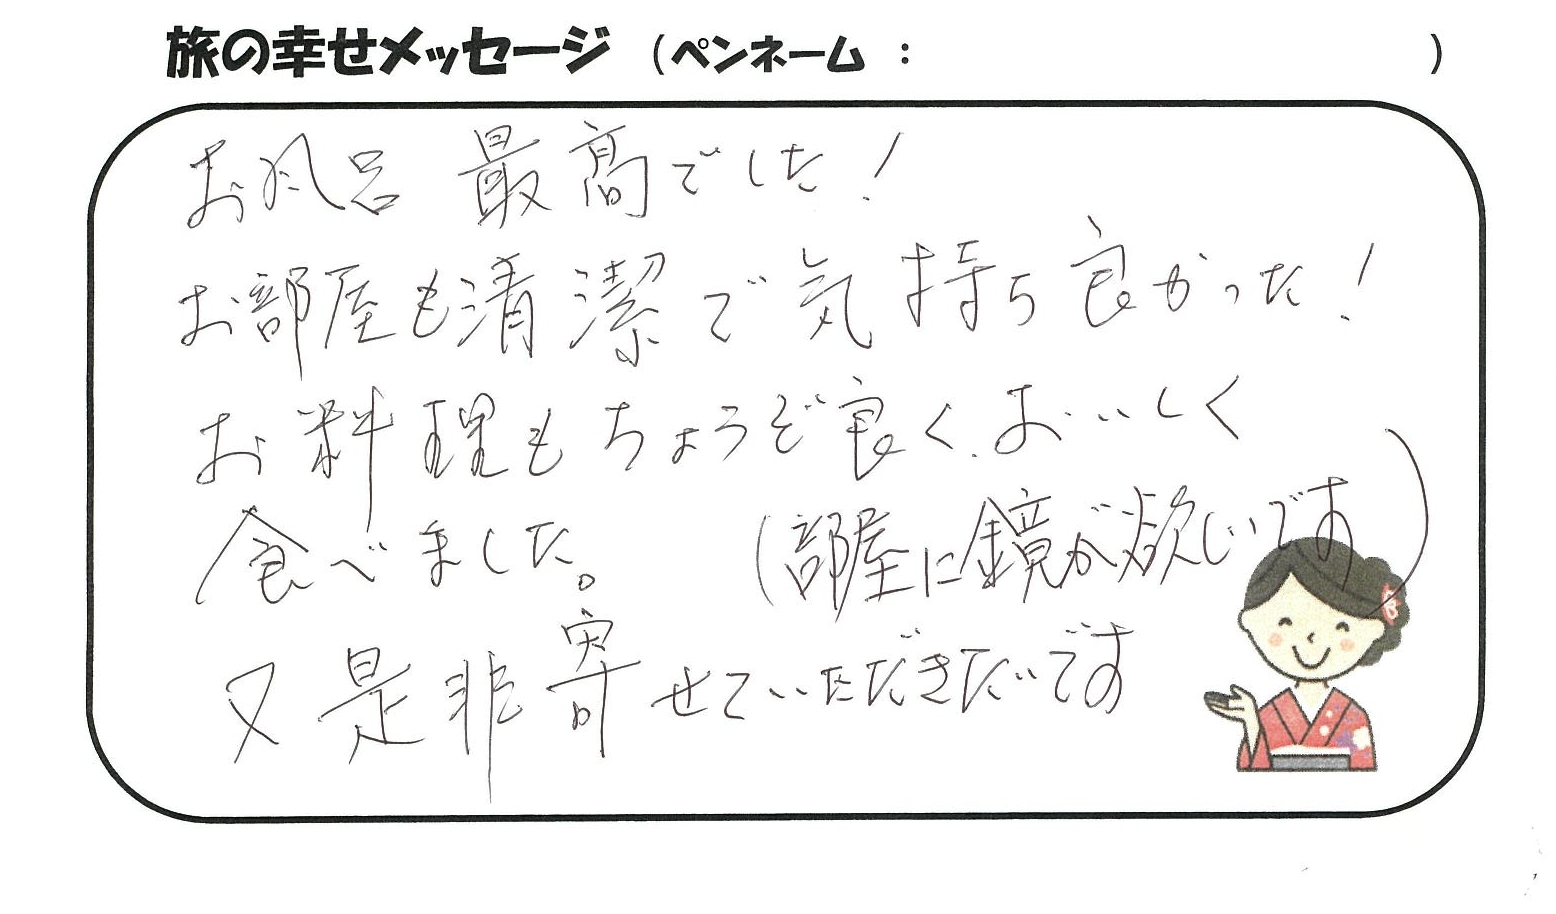 旅の幸せメッセージ (ペンネーム : )
お風呂 最高でした!
お部屋も清潔で気持ち良かった!
お料理もちょうど良く、おいしく
食べました。
(部屋に鏡が欲しいです)
又是非寄せていただきたいです